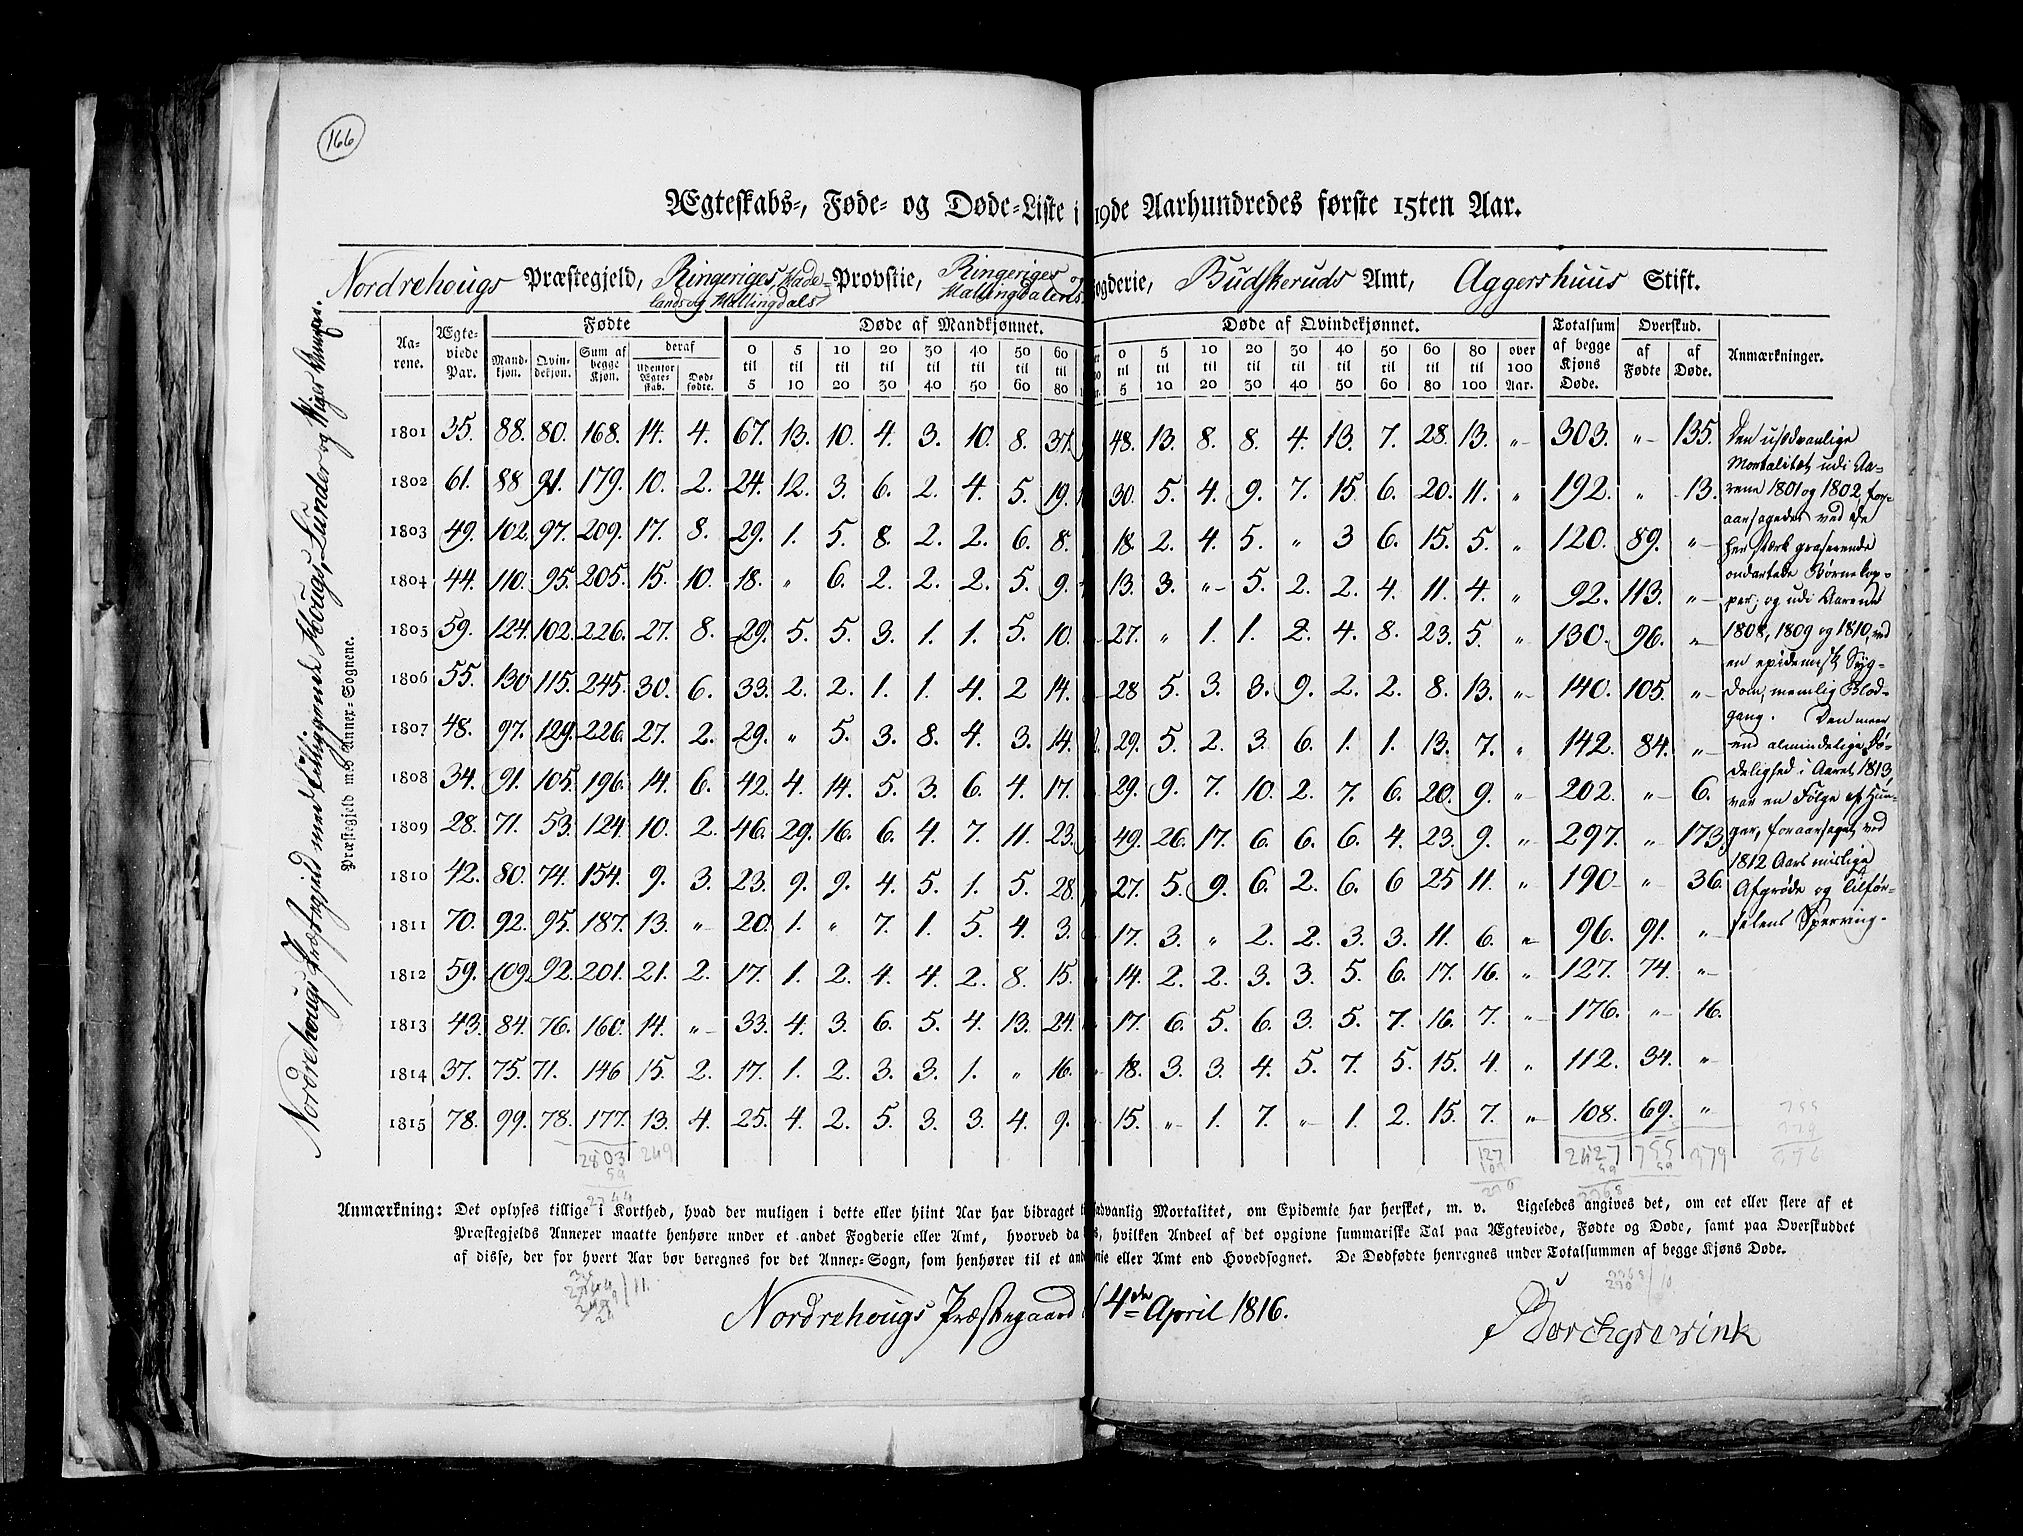 166
Ægteskabs-, Føde- og Døde-Liste i 19de Aarhundredes første 15ten Aar.
Nordrehougs Præstegjeld, Ringeriges, Hade- Provstie, Ringeriges og ogderie, Budskeruds Amt, Aggershuus Stift.
lands og Hallingdals Hallingdalens
Nordrehougs Præstegjeld med tilliggende Hougs, Lunder og Viger Annexer.
Præstegjeld med Annex-Sognene.
Aarene. Ægteviede Par. Fødte Døde af Mandkjønnet. Døde af Qvindekjønnet. Totalsum af begge Kjøns Døde. Overskud. Anmærkninger.
Mandkjøn. Qvindekjøn. Sum af begge Kjøn. deraf udenfor Ægteskab. Dødfødte. 0 til 5 5 til 10 10 til 20 20 til 30 30 til 40 40 til 50 50 til 60 60 til 80 0 til 5 5 til 10 10 til 20 20 til 30 30 til 40 40 til 50 50 til 60 60 til 80 80 til 100 over 100 Aar. af Fødte af Døde.
1801 35. 88. 80. 168. 14. 4. 67. 13. 10. 4. 3. 10. 8. 37. 48. 13. 8. 8. 4. 13. 7. 28. 13. " 303. " 135.
1802 61. 88 91. 179. 10. 2. 24. 12. 3. 6. 2. 4. 5. 19. 30. 5. 4. 9. 7. 15. 6. 20. 11. " 192. " 13.
1803 49. 102. 97. 209. 17. 8. 29. 1. 5. 8. 2. 2. 6. 8. 18. 2. 4. 5. " 3 6. 15. 5. " 120. 89. "
1804 44. 110. 95. 205. 15. 10. 18. " 6. 2. 2. 2. 5. 9. 13. 3. " 5. 2. 2. 4. 11. 4. " 92. 113. "
1805 59. 124. 102. 226. 27. 8. 29. 5. 5. 3. 1. 1. 5. 10. 27. " 1. 1. 2. 4. 8. 23. 5. " 130. 96. "
1806 55. 130 115. 245. 30. 6. 33. 2. 2. 1. 1. 4. 2 14. 28 5. 3. 3. 9. 2. 2. 8. 13. " 140. 105. "
1807 48. 97. 129. 226. 27. 2. 29. " 5. 3. 8. 4. 3. 14. 29. 5. 2. 3. 6. 1. 1. 13. 7. " 142. 84. "
1808 34. 91. 105. 196. 14. 6. 42. 4. 14. 5. 3. 6. 4. 17. 29. 9. 7. 10. 2. 7. 6. 20. 9. " 202. " 6.
1809 28. 71. 53. 124. 10. 2. 46. 29. 16. 6. 4. 7. 11. 23. 49. 26. 17. 6. 6. 6. 4. 23. 9. " 297. " 173.
1810 42. 80. 74. 154. 9. 3. 23. 9. 9. 4. 5. 1. 5. 28. 27. 5. 9. 6. 2. 6. 6 25 11. " 190 " 36.
1811 70. 92. 95. 187. 13. " 20. 1. " 7. 1. 5. 4. 3. 17. 3. " 2. 2. 3. 3. 11. 6. " 96. 91. "
1812 59. 109. 92. 201. 21. 2. 17. 1. 2. 4. 4. 2. 8. 15. 14. 2. 2. 3. 3. 5. 6. 17. 16. " 127. 74. "
1813 43. 84. 76. 160. 14. " 33. 4. 3. 6. 5. 4. 13. 24. 17. 6. 5. 6. 3. 5. 7. 16. 7. " 176. " 16.
1814 37. 75. 71. 146 15. 2. 17. 1. 2. 3. 3. 1. " 16. 18. 3. 3. 4. 5. 7. 5. 15. 4. " 112. 34. "
1815 78. 99. 78. 177. 13. 4. 25. 4. 2. 5. 3. 3. 4. 9. 15. " 1. 7. " 1. 2. 15. 7. " 108. 69. "
2803 249 127 2427 755 379
59
2744
Den usædvanlige
Mortalitæt udi Aa-
rene 1801 og 1802, for-
aarsagedes ved de
her stærk graserende
ondartede Børnekop-
per; og udi Aarene
1808, 1809 og 1810, ved
en epidemisk Syg-
dom, nemlig Blod-
gang. Den meer
end almindelige Dø-
delighed i Aaret 1813,
var en Følge af Hun-
ger, foraarsaget ved
1812 Aars mislige
Afgrøde og Tilfør-
selens Sperring.
Anmærkning: Det oplyses tillige i Korthed, hvad der muligen i dette eller hiint Aar har bidraget til sædvanlig Mortalitet, om Epidemie har hersket, m. v. Ligeledes angives det, om eet eller flere af et
Præstegjelds Annexer maatte henhøre under et andet Fogderie eller Amt, hvorved da hvilken Andeel af det opgivne summariske Tal paa Ægteviede, Fødte og Døde, samt paa Overskuddet
af disse, der for hvert Aar bør beregnes for det Annex-Sogn, som henhører til et andet eller Amt end Hovedsognet. De Dødfødte henregnes under Totalsummen af begge Kjøns Døde.
Nordrehougs Præstegaard 4de April 1816.
Borchgrevink